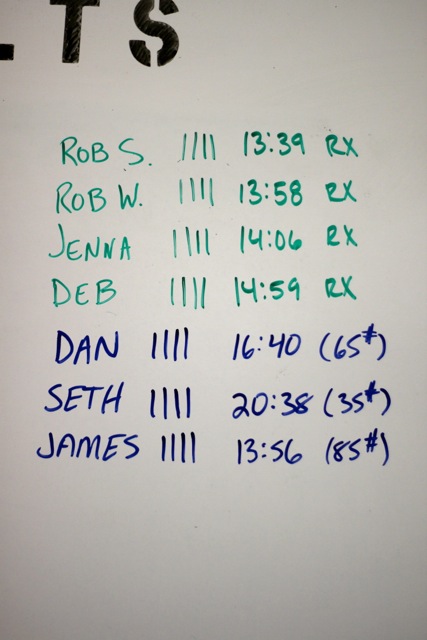 LTS
ROB S. |||| 13:39 RX
ROB W. |||| 13:58 RX
JENNA |||| 14:06 RX
DEB |||| 14:59 RX
DAN |||| 16:40 (65#)
SETH |||| 20:38 (35#)
JAMES |||| 13:56 (85#)